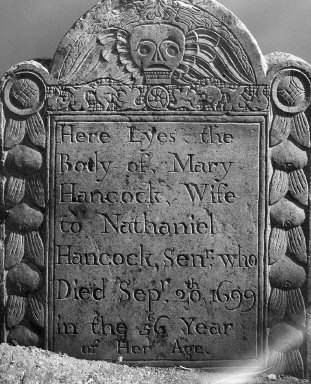 Here Lyes the
Body of, Mary
Hancock, Wife
to Nathaniel
Hancock, Senr. who
Died Sepr. 20th 1699
in the 56 Year
of Her Age.